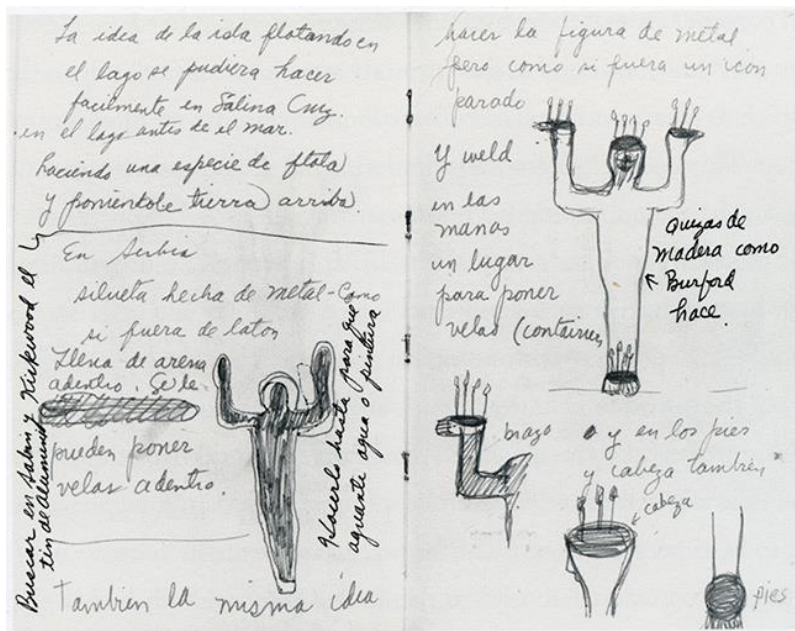 La idea de la isla flotando en
el lago se pudiera hacer
facilmente en Salina Cruz.
en el lago antes de el mar.
haciendo una especie de flota
y poniéndole tierra arriba.
En Serbia
silueta hecha de metal-como
si fuera de laton
Llena de arena
adentro. Se le
pueden poner
velas adentro.
Tambien la misma idea
Buscar en Sabin y Kirkwood el
tin de aluminum
Hacerlo hasta para que
aguante agua o pintura
hacer la figura de metal
pero como si fuera un icon
parado
Y weld
en las
manos
un lugar
para poner
velas (container
Quizas de
madera como
Burford
hace.
brazo
y en los pies
y cabeza también
cabeza
pies